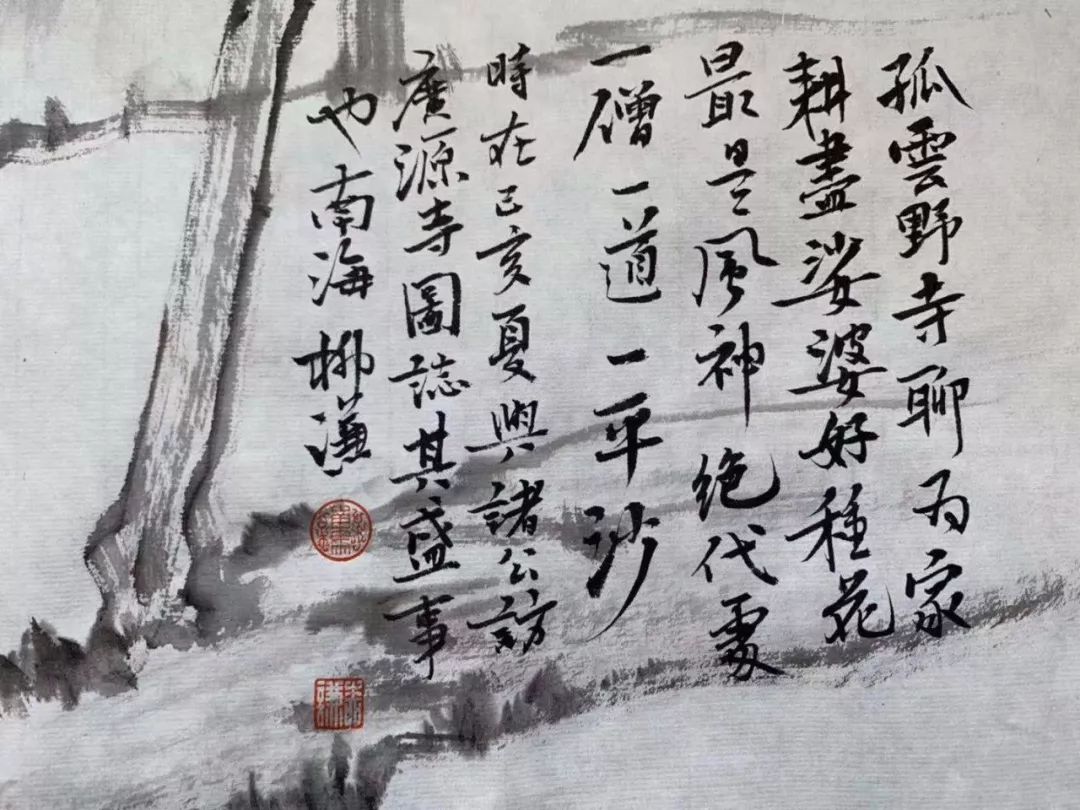 孤雲野寺聊为家
耕盡娑婆好種花
最是風神絕代處
一僧一道一平沙
時在己亥夏與諸公訪
廣源寺圖誌其盛事
也南海柳濂